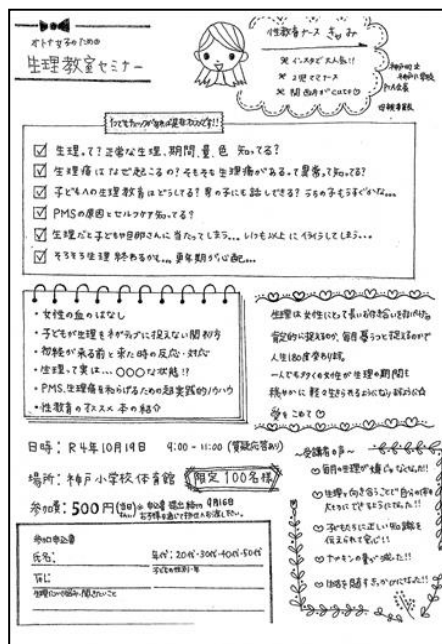 オトナ女子のための
生理教室セミナー
性教育ナース
※ インスタで大人気!!
※ 2児ママナース
※ 関西弁がcute♡
神戸小学校
☑ 生理って?正常な生理、期間、量、色 知ってる?
☑ 生理痛はなぜ起こるの?そもそも生理痛があるって異常って知ってる?
☑ 子どもへの生理教育はどうしてる?男の子にも話しできる?うちの子もうすぐかな…
☑ PMSの原因とセルフケア知ってる?
☑ 生理だと子どもや旦那さんに当たってしまう…いつも以上にイライラしてしまう…
☑ そろそろ生理終わるかも…更年期が心配…
・女性の血のはなし
・子どもが生理をネガティブに捉えない関わり方
・初経が来る前と来た時の反応・対応
・生理って実は…〇〇〇な状態!!
・PMS、生理痛を和らげるための超実践的ノウハウ
・性教育のオススメ本の紹介
生理は女性にとって長いお付き合い
肯定的に捉えるのか、毎月憂うつと捉えるのかで
人生180度変わります。
一人でも多くの女性が生理の期間も
穏やかに軽々生きられるようになりますように☆
愛をこめて♡
日時:R4年10月19日 9:00-11:00(質疑応答あり)
場所:神戸小学校体育館 限定100名様
参加費:500円(当日) 申込書 提出締切 9月16日
〜受講者の声〜
♡ 毎月の生理が嬉しくなった!!
♡ 生理と向き合うことで自分の体を
大切にできるようになった!!
♡ 子どもたちに正しい知識を
伝えられて良い!!
♡ ナプキンの量が減った!!
参加申込書
氏名: 年代:20代・30代・40代・50代
子どもの性別・年
TEL:
生理についてお悩み・聞きたいこと